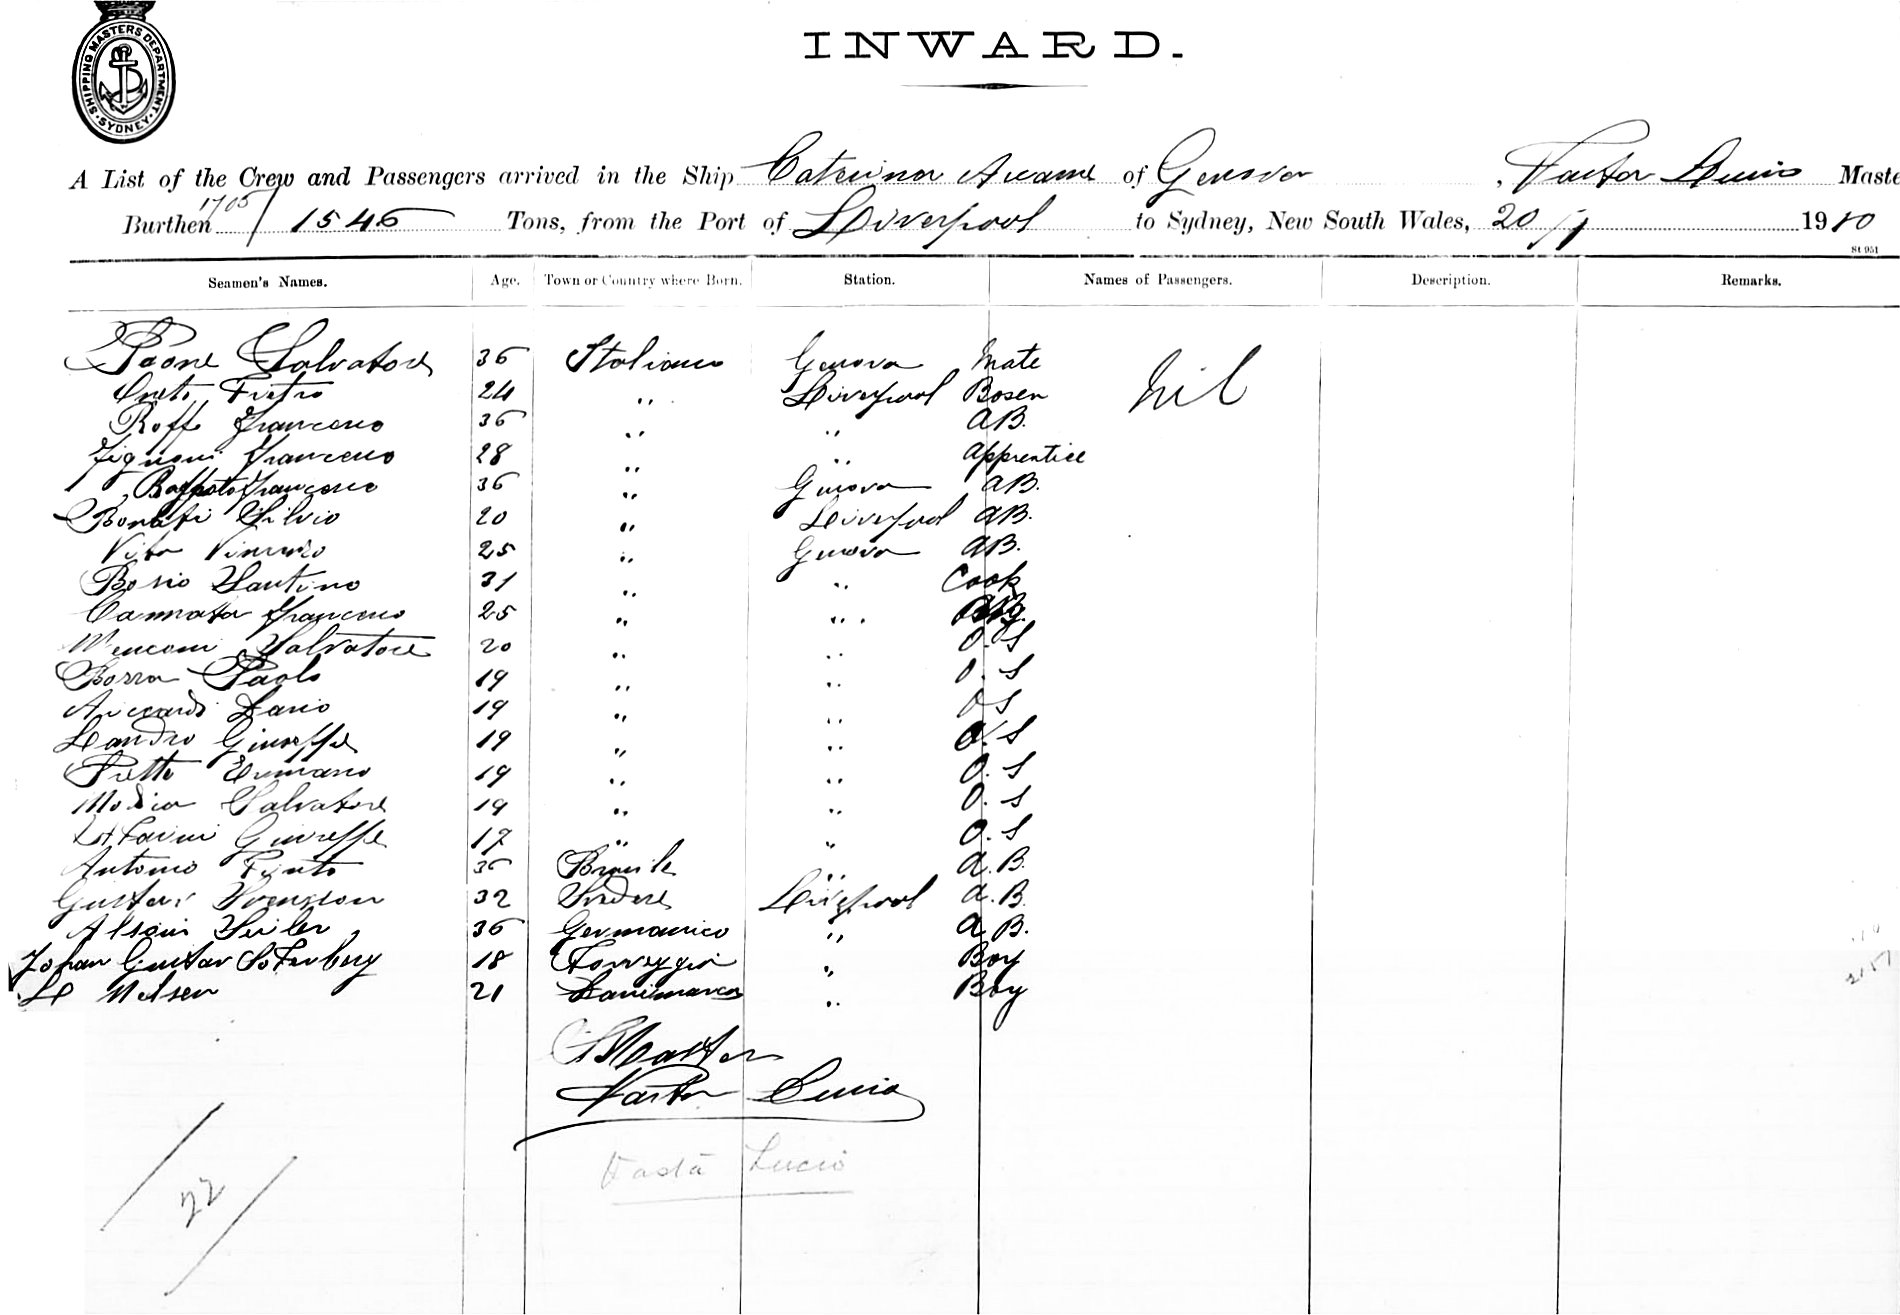 SHIPPING MASTERS DEPARTMENT. SYDNEY
INWARD.
A List of the Crew and Passengers arrived in the Ship Caterina Accame of Genova , Vasta Lucio Maste
Burthen 1705/1546 Tons, from the Port of Liverpool to Sydney, New South Wales, 20/1 1910
St 951
Seamen's Names. Age. Town or Country where Born. Station. Names of Passengers. Description. Remarks.
Paone Salvatore 36 Italiano Genova Mate
Nil
Pietro 24 " Liverpool Bosen
Roffo Francesco 36 " " A.B.
Francesco 28 " " Apprentice
Francesco 36 " Genova A.B.
Silvio 20 " Liverpool A.B.
Vita Vincenzo 25 " Genova A.B.
Bosio Santino 31 " " Cook
Cannata Francesco 25 " "
Menconi Salvatore 20 " " O.S
Paolo 19 " " O.S
Accardi Dario 19 " " O S
Leandro Giuseppe 19 " " O.S
19 " " O.S
Modica Salvatore 19 " " O.S
Giuseppe 17 " " O.S
Antonio Pinto 36 Brasile " A.B.
Gustav Svensson 32 Svedese Liverpool A.B.
Seiler 36 Germanico " A.B.
Johan Gustav 18 Norveggia " Boy
Nelsen 21 Danimarca " Boy
Master
Vasta Lucio
Vastà Lucio
22